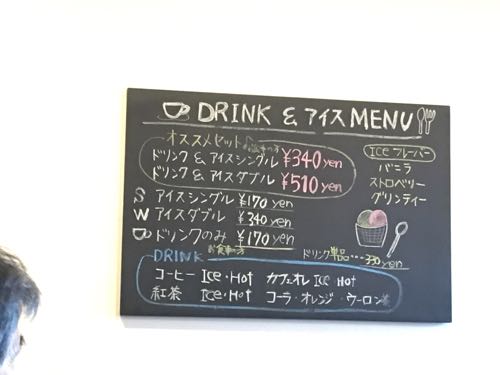 DRINK & アイス MENU
オススメセット お食事の方
ドリンク & アイスシングル ¥340 yen
ドリンク & アイスダブル ¥510 yen
S アイスシングル ¥170 yen
W アイスダブル ¥340 yen
ドリンクのみ ¥170 yen
お食事の方
ICe フレーバー
バニラ
ストロベリー
グリンティー
ドリンク単品・・・330 yen
DRINK
コーヒー Ice・Hot カフェオレ Ice・Hot
紅茶 Ice・Hot コーラ・オレンジ・ウーロン